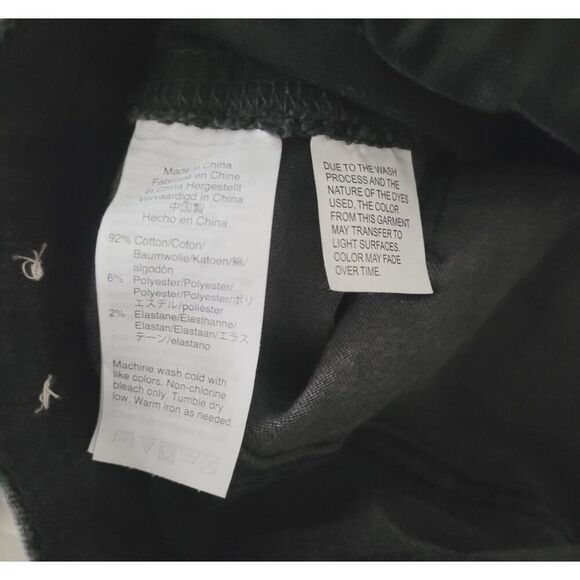 Made in China
Fabriqué en Chine
in China Hergestellt
Vervaardigd in China
中国製
Hecho en China
92% Cotton/Coton/
Baumwolle/Katoen/綿/
algodón
6% Polyester/Polyester/
Polyester/Polyester/ポリ
エステル/poliéster
2% Elastane/Elasthanne/
Elastan/Elastaan/エラス
テーン/elastano
Machine wash cold with
like colors. Non-chlorine
bleach only. Tumble dry
low. Warm iron as needed.
DUE TO THE WASH
PROCESS AND THE
NATURE OF THE DYES
USED, THE COLOR
FROM THIS GARMENT
MAY TRANSFER TO
LIGHT SURFACES.
COLOR MAY FADE
OVER TIME.